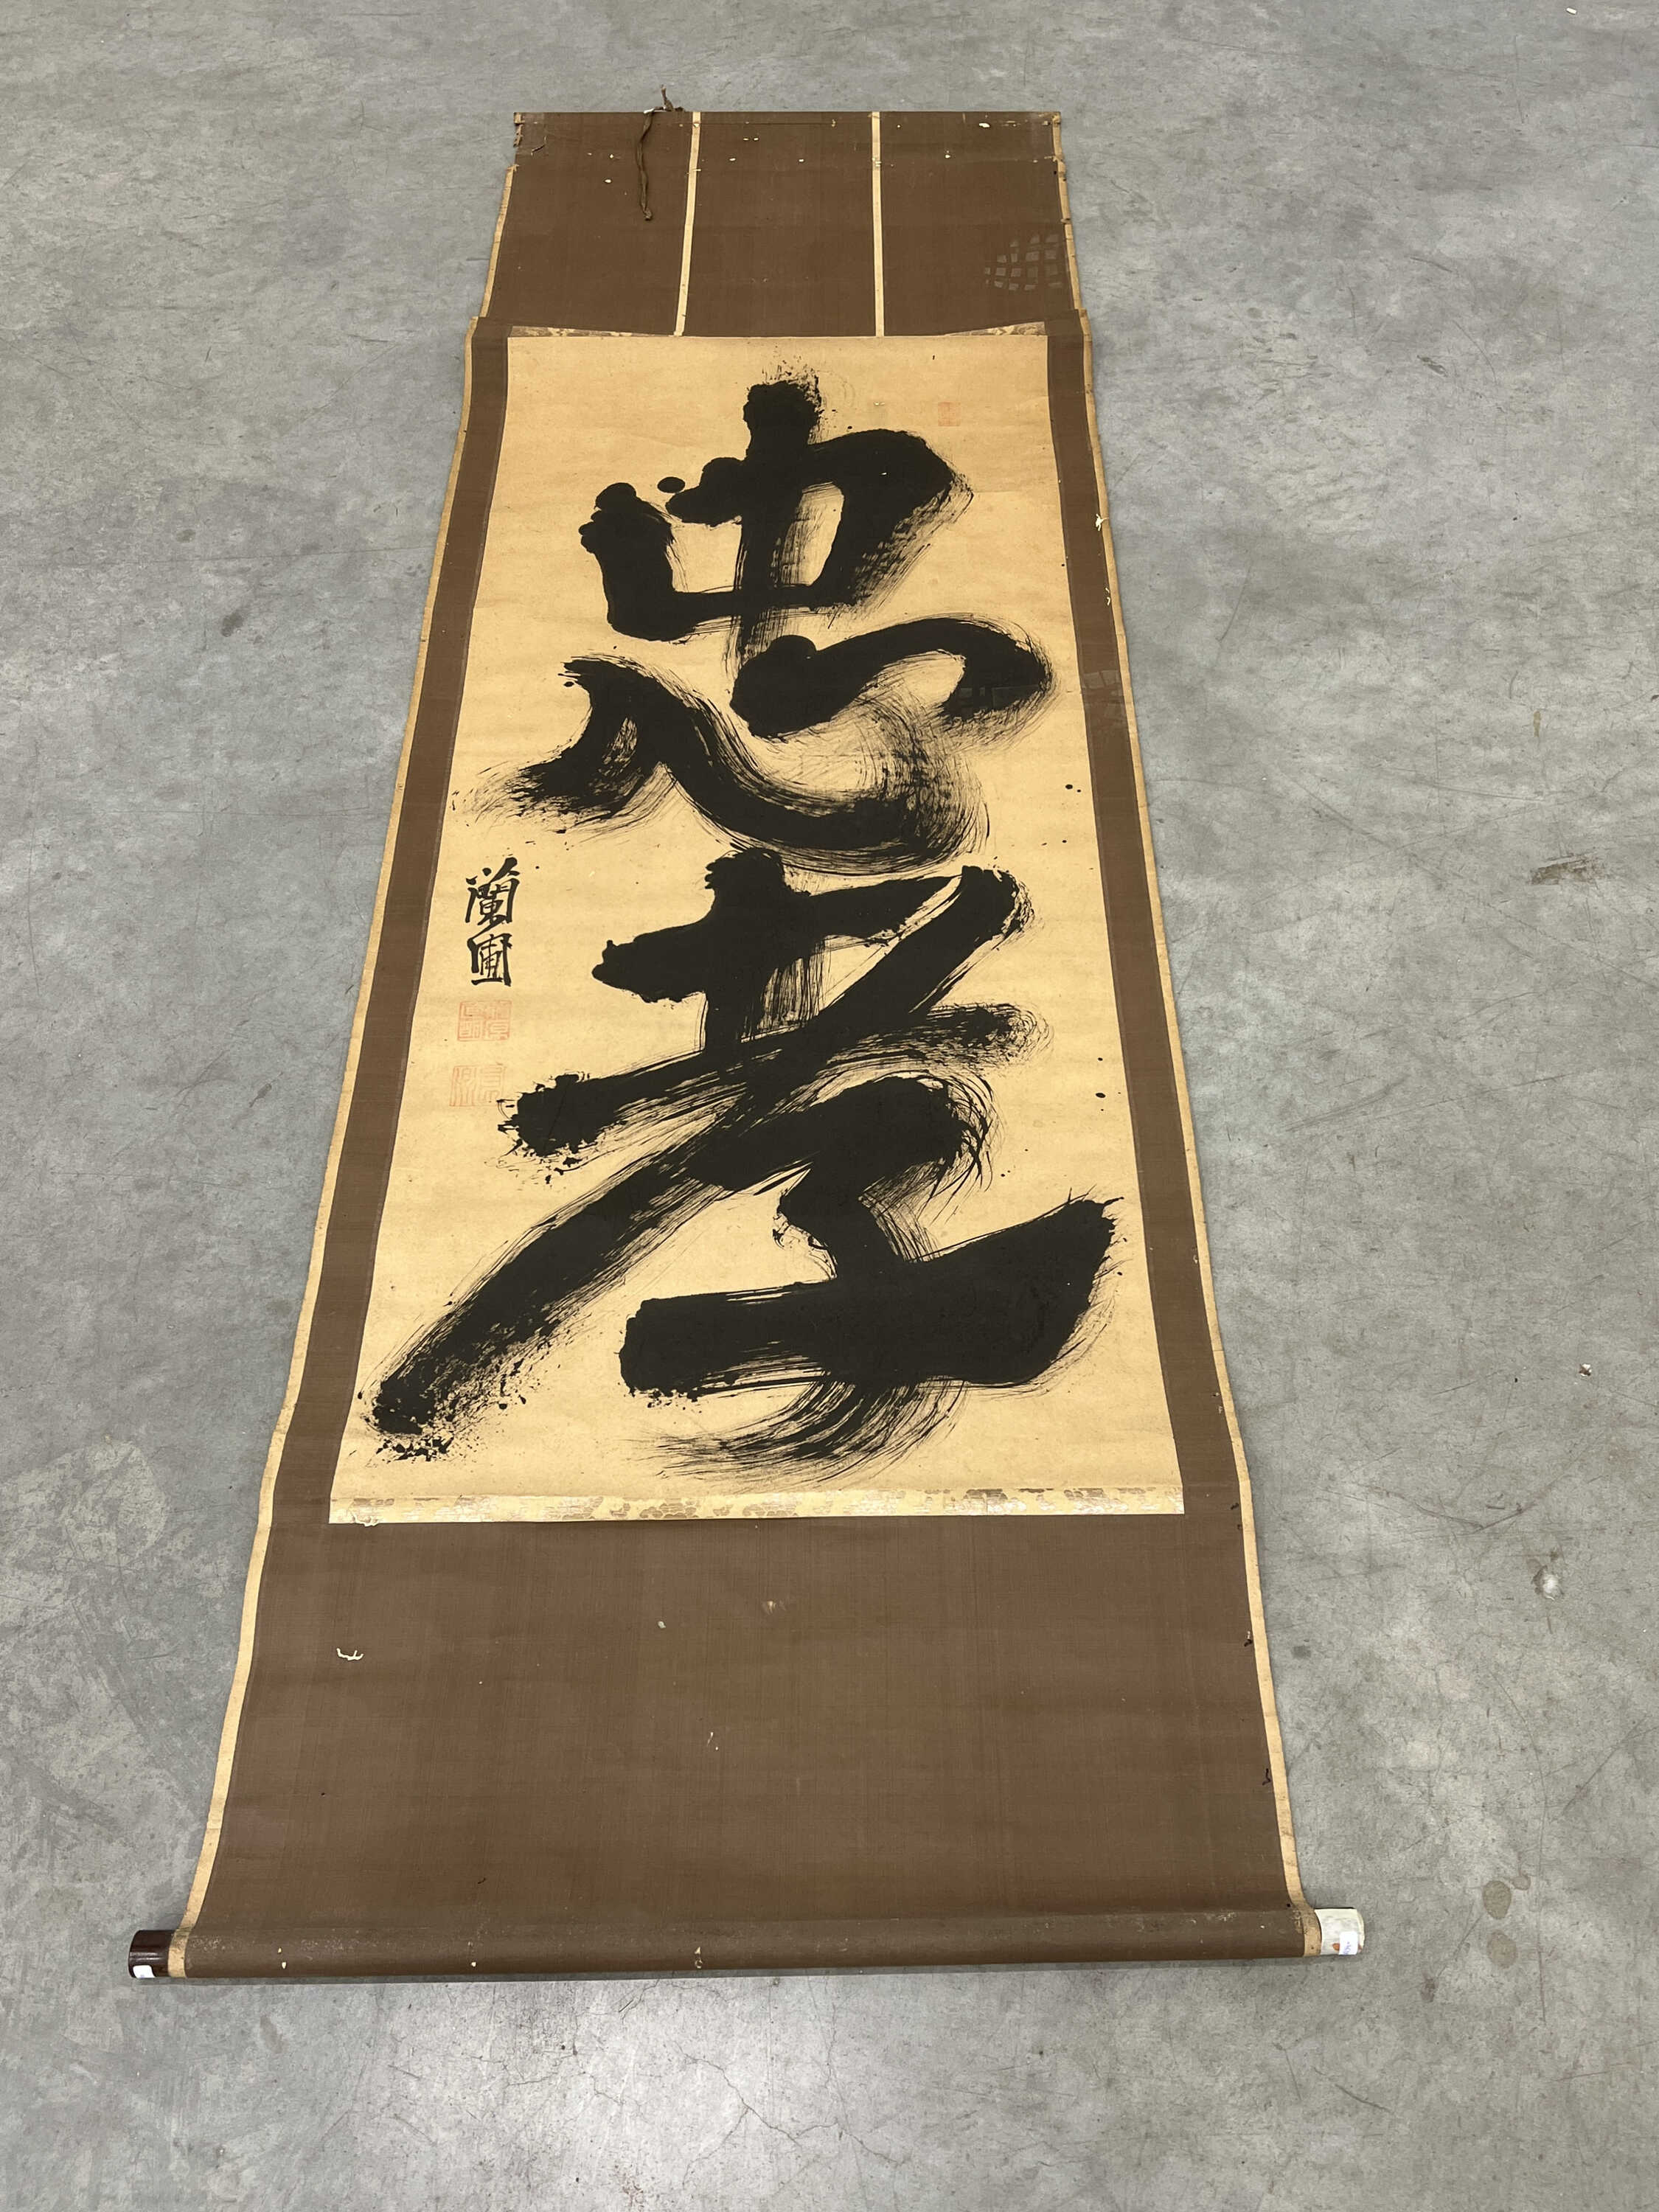 忠孝
蘭圃